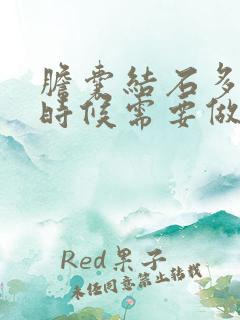 膽囊結石多
時候需要做
Red果子
未经同意禁止转载